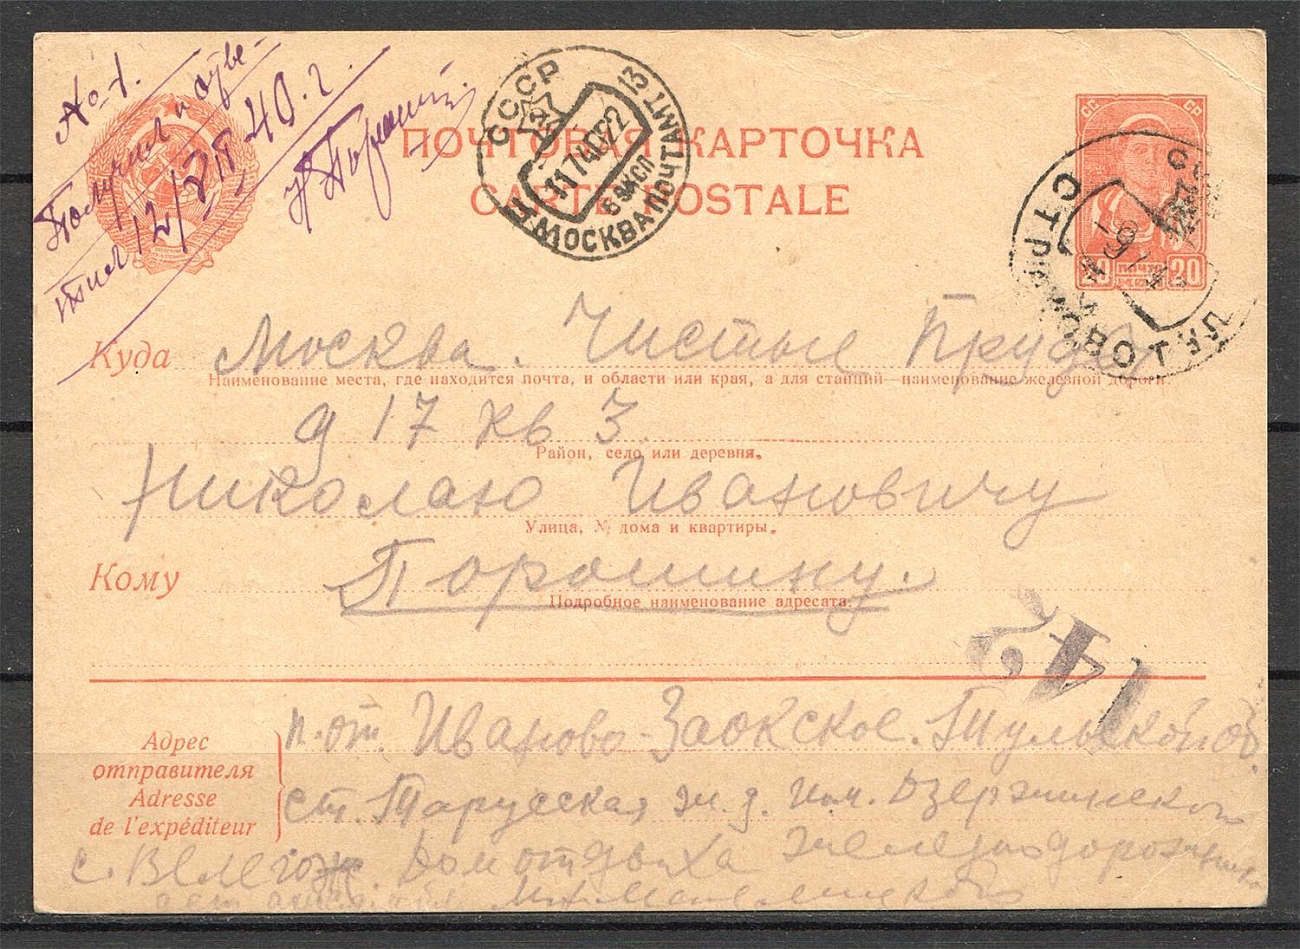 № 1.
Получил и отве-
тил 12/VII 40 г.
Н Порошин
СССР 13
11 7 40 22
6 ЭКСП
МОСКВА ПОЧТАМТ
СС СР
ПОЧТОВАЯ КАРТОЧКА
CARTE POSTALE
20 ПОЧТА 20
КОП
Куда Москва. Чистые Пруды
Наименование места, где находится почта, и области или края, а для станций—наименование железной дороги.
д 17 кв 3.
Район, село или деревня.
Николаю Ивановичу
Улица, № дома и квартиры.
Кому Порошину.
Подробное наименование адресата.
142
Адрес
отправителя
Adresse
de l'expéditeur
п. от. Иваново-Заокское. Тульской об.
ст. Тарусская ж. д. им. Дзержинского
с. Велегож. Дом отдыха железнодорожников